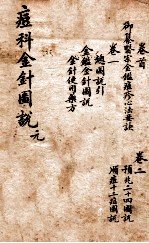 卷首
御纂醫宗金鑑痘疹心法要訣
卷一
總圖說引
金鑑金針圖說
金針使用藥方
卷二
見形二十四圖說
順症十二症圖說
痘科金針圖說 元